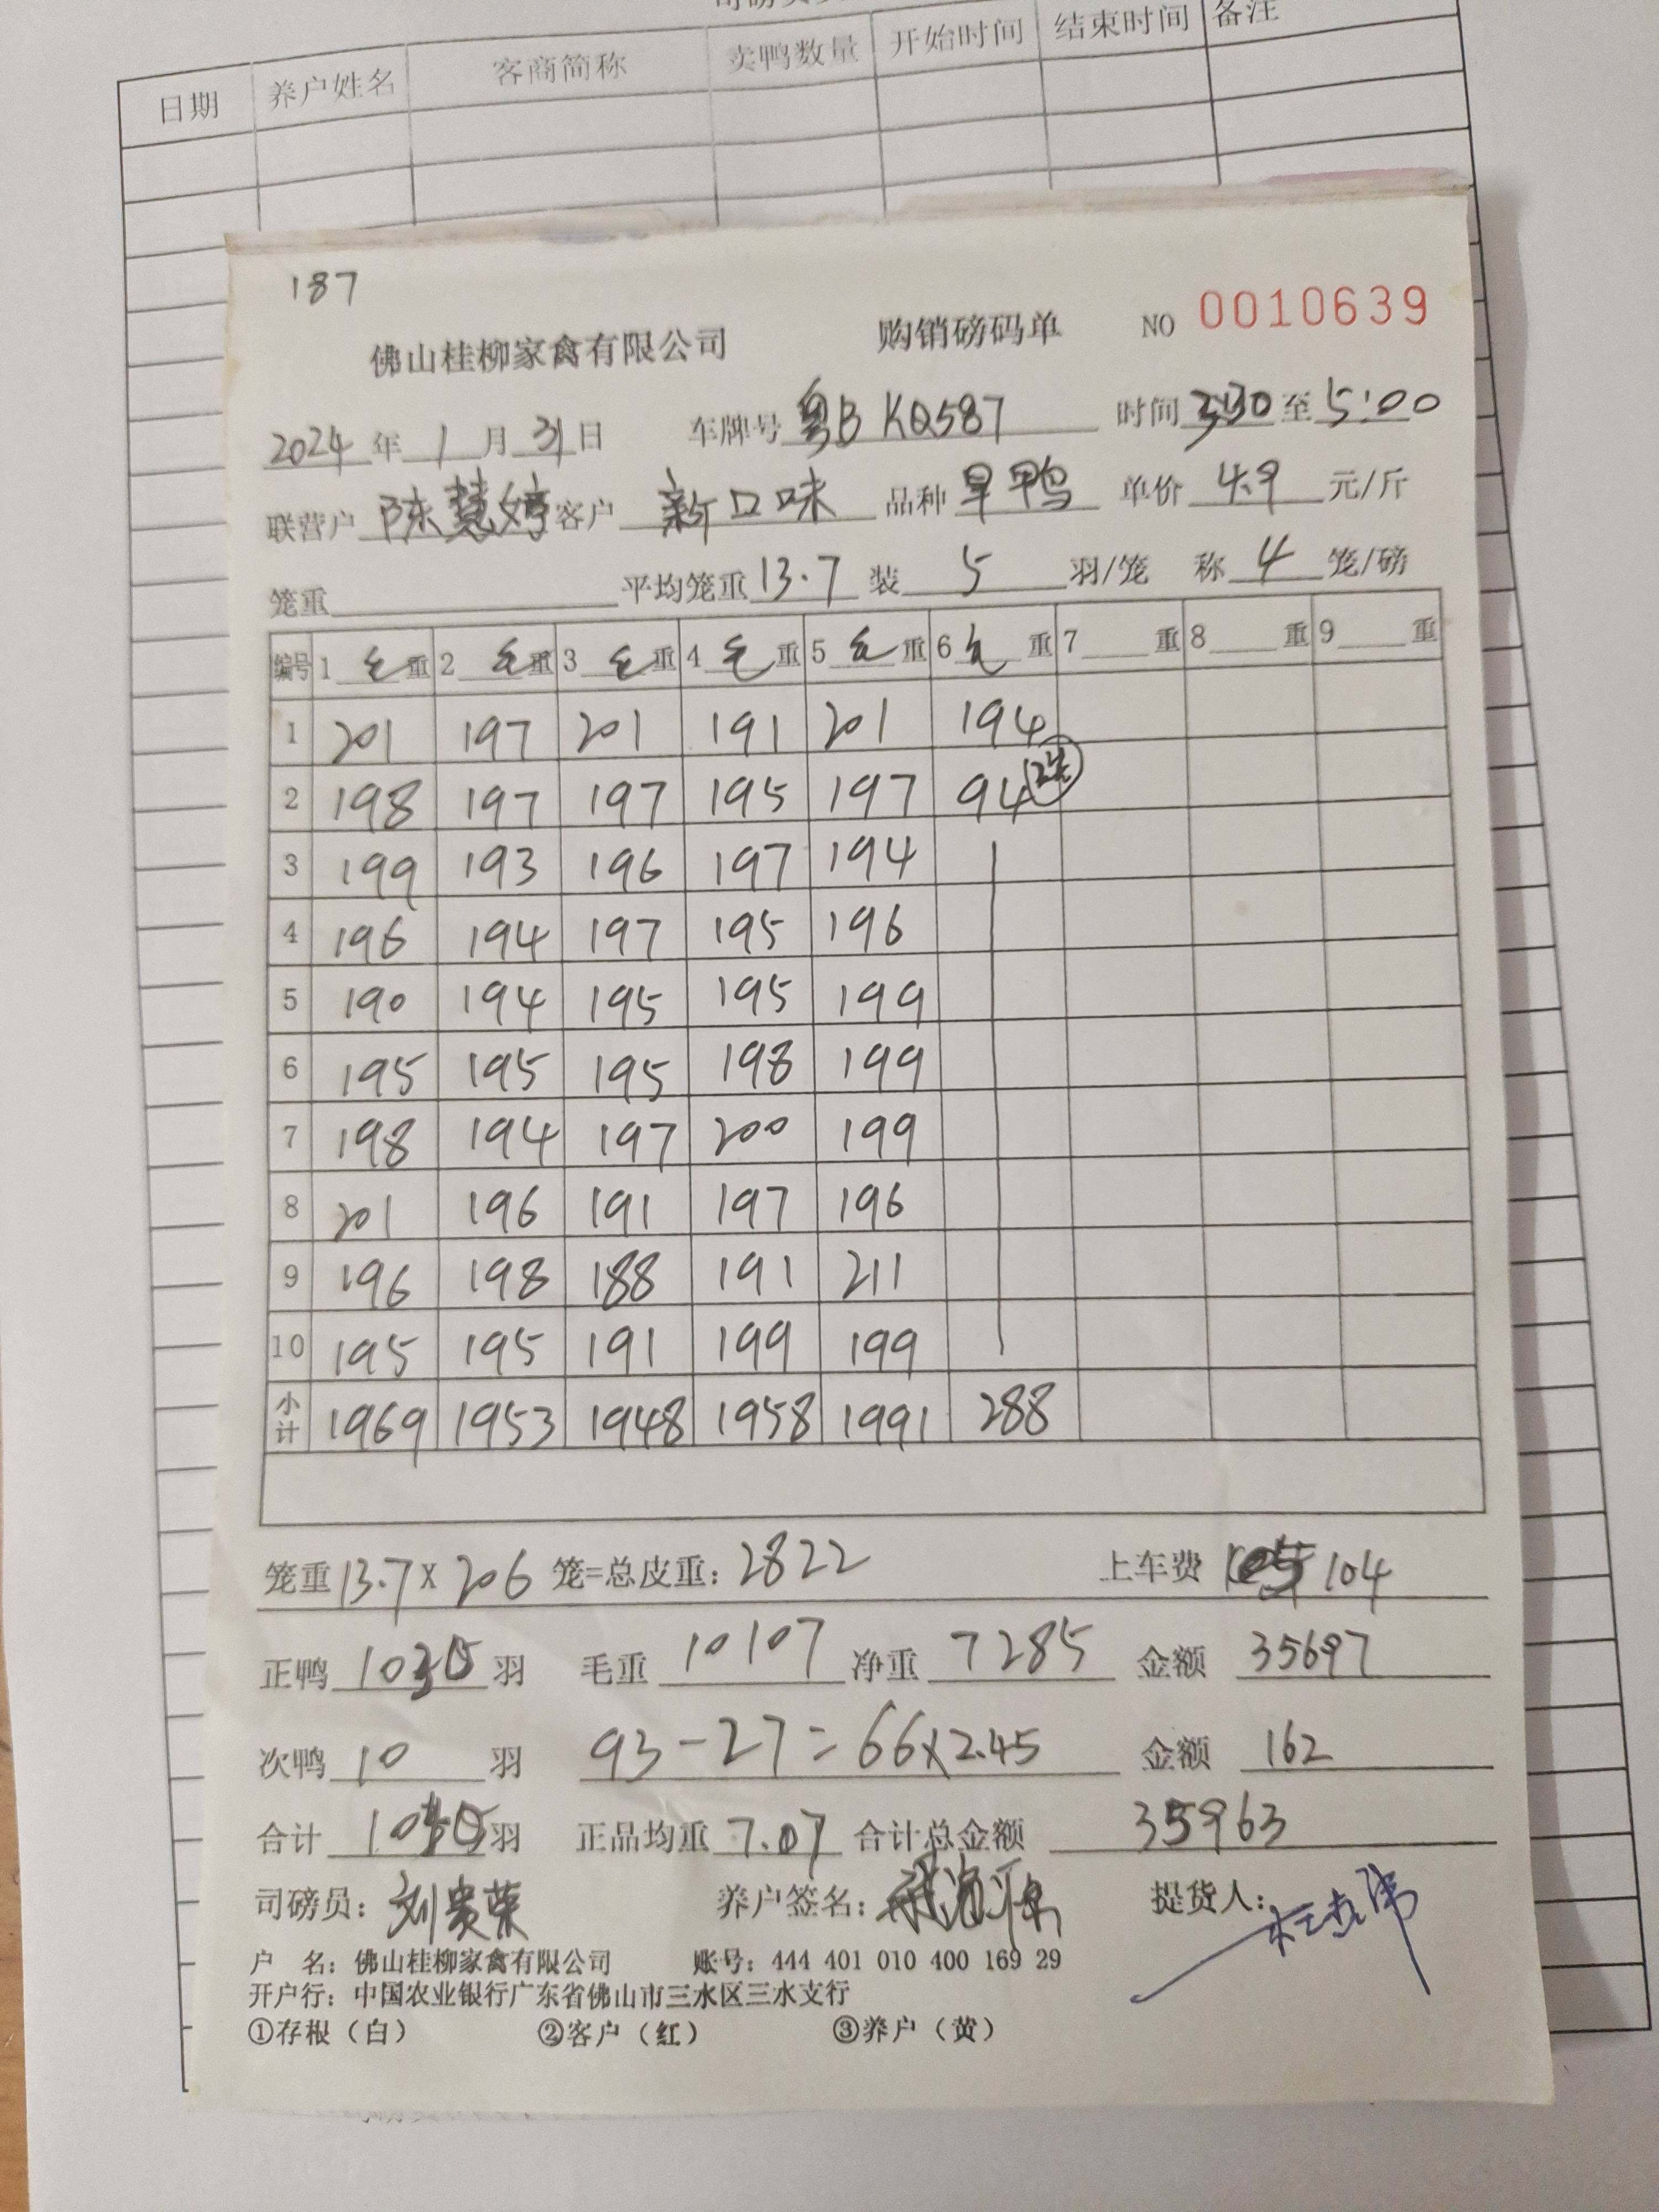 日期 养户姓名 客商简称 卖鸭数量 开始时间 结束时间 备注
187
佛山桂柳家禽有限公司 购销磅码单 NO 0010639
2024 年 1 月 31 日 车牌号 粤B KQ587 时间 3:30 至 5:00
联营户 陈慧婷 客户 新口味 品种 旱鸭 单价 4.9 元/斤
笼重 平均笼重 13.7 装 5 羽/笼 称 4 笼/磅
编号 1 毛重 2 毛重 3 毛重 4 毛重 5 毛重 6 毛重 7 重 8 重 9 重
1 201 197 201 191 201 194
2 198 197 197 195 197 94
3 199 193 196 197 194
4 196 194 197 195 196
5 190 194 195 195 199
6 195 195 195 198 199
7 198 194 197 200 199
8 201 196 191 197 196
9 196 198 188 191 211
10 195 195 191 199 199
小计 1969 1953 1948 1958 1991 288
笼重 13.7 X 206 笼=总皮重: 2822 上车费 104
正鸭 羽 毛重 10107 净重 7285 金额 35697
次鸭 10 羽 93-27=66X2.45 金额 162
合计 羽 正品均重 7.07 合计总金额 35963
司磅员: 刘贵荣 养户签名: 提货人:
户 名: 佛山桂柳家禽有限公司 账号: 444 401 010 400 169 29
开户行: 中国农业银行广东省佛山市三水区三水支行
①存根（白） ②客户（红） ③养户（黄）